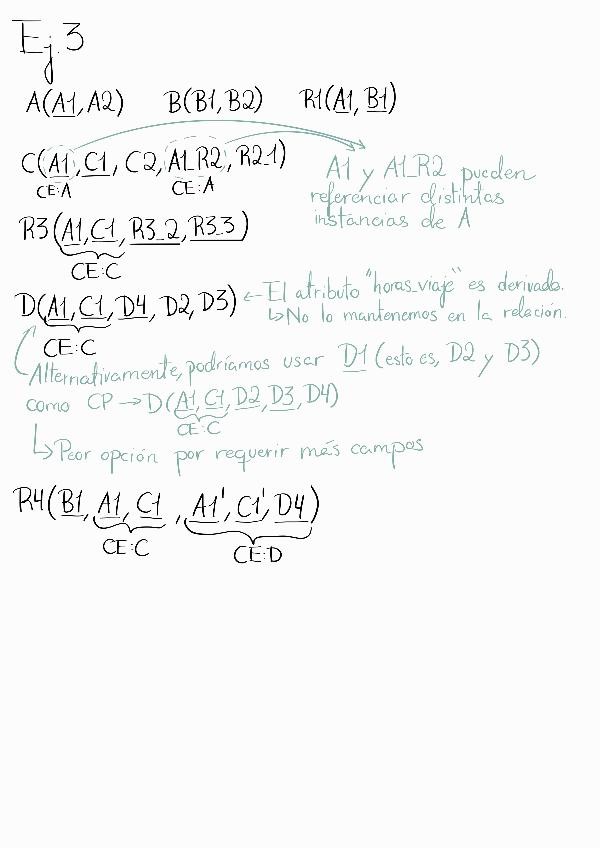 Ej.3
A(A1, A2) B(B1, B2) R1(A1, B1)
C(A1, C1, C2, A1_R2, R2_1)
CE:A CE:A
A1 y A1_R2 pueden
referenciar distintas
instancias de A
R3(A1, C1, R3_2, R3_3)
CE:C
D(A1, C1, D4, D2, D3) ← El atributo "horas_viaje" es derivado.
↳ No lo mantenemos en la relación.
CE:C
Alternativamente, podríamos usar D1 (esto es, D2 y D3)
como CP → D(A1, C1, D2, D3, D4)
CE:C
↳ Peor opción por requerir más campos
R4(B1, A1, C1, A1', C1', D4)
CE:C CE:D